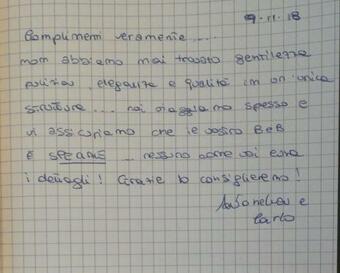 9.11.18
Complimenti veramente....
non abbiamo mai trovato gentilezza
pulizia, eleganza e qualità in un'unica
struttura... noi viaggiamo spesso e
vi assicuriamo che il vostro B&B
è ... nessuno come voi cura
i dettagli! Grazie lo consiglieremo!
Antonella e
Carlo